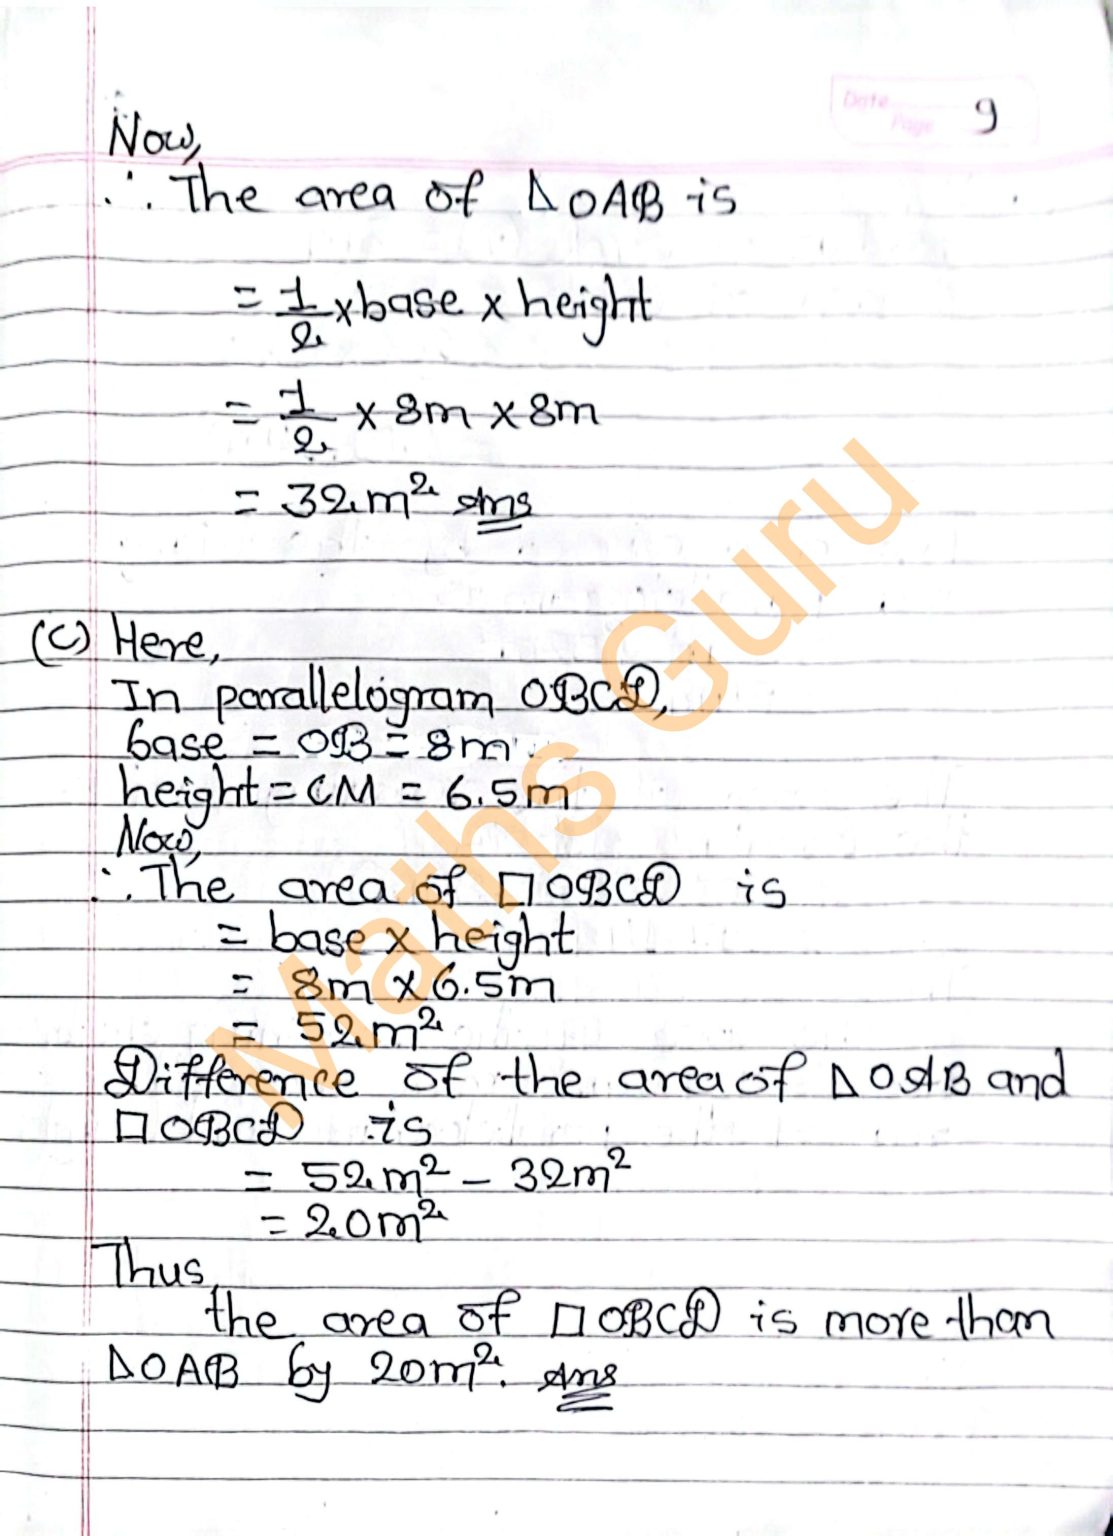 Date
Page
9
Now,
∴ The area of △OAB is
= 1/2 × base × height
= 1/2 × 8m × 8m
= 32m² Ans
(C) Here,
In parallelogram OBCD,
base = OB = 8m
height = CM = 6.5m
Now,
∴ The area of ▱OBCD is
= base × height
= 8m × 6.5m
= 52m²
Difference of the area of △OAB and
▱OBCD is
= 52m² - 32m²
= 20m²
Thus,
the area of ▱OBCD is more than
△OAB by 20m². Ans
Maths Guru